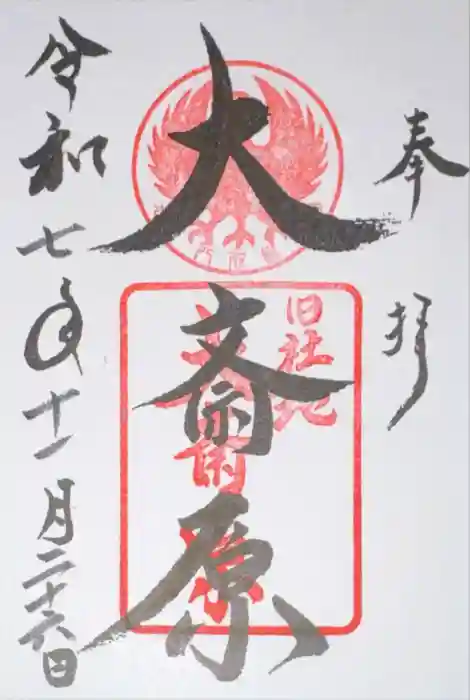 奉拝
旧社地
大斎原
令和七年十一月二十六日